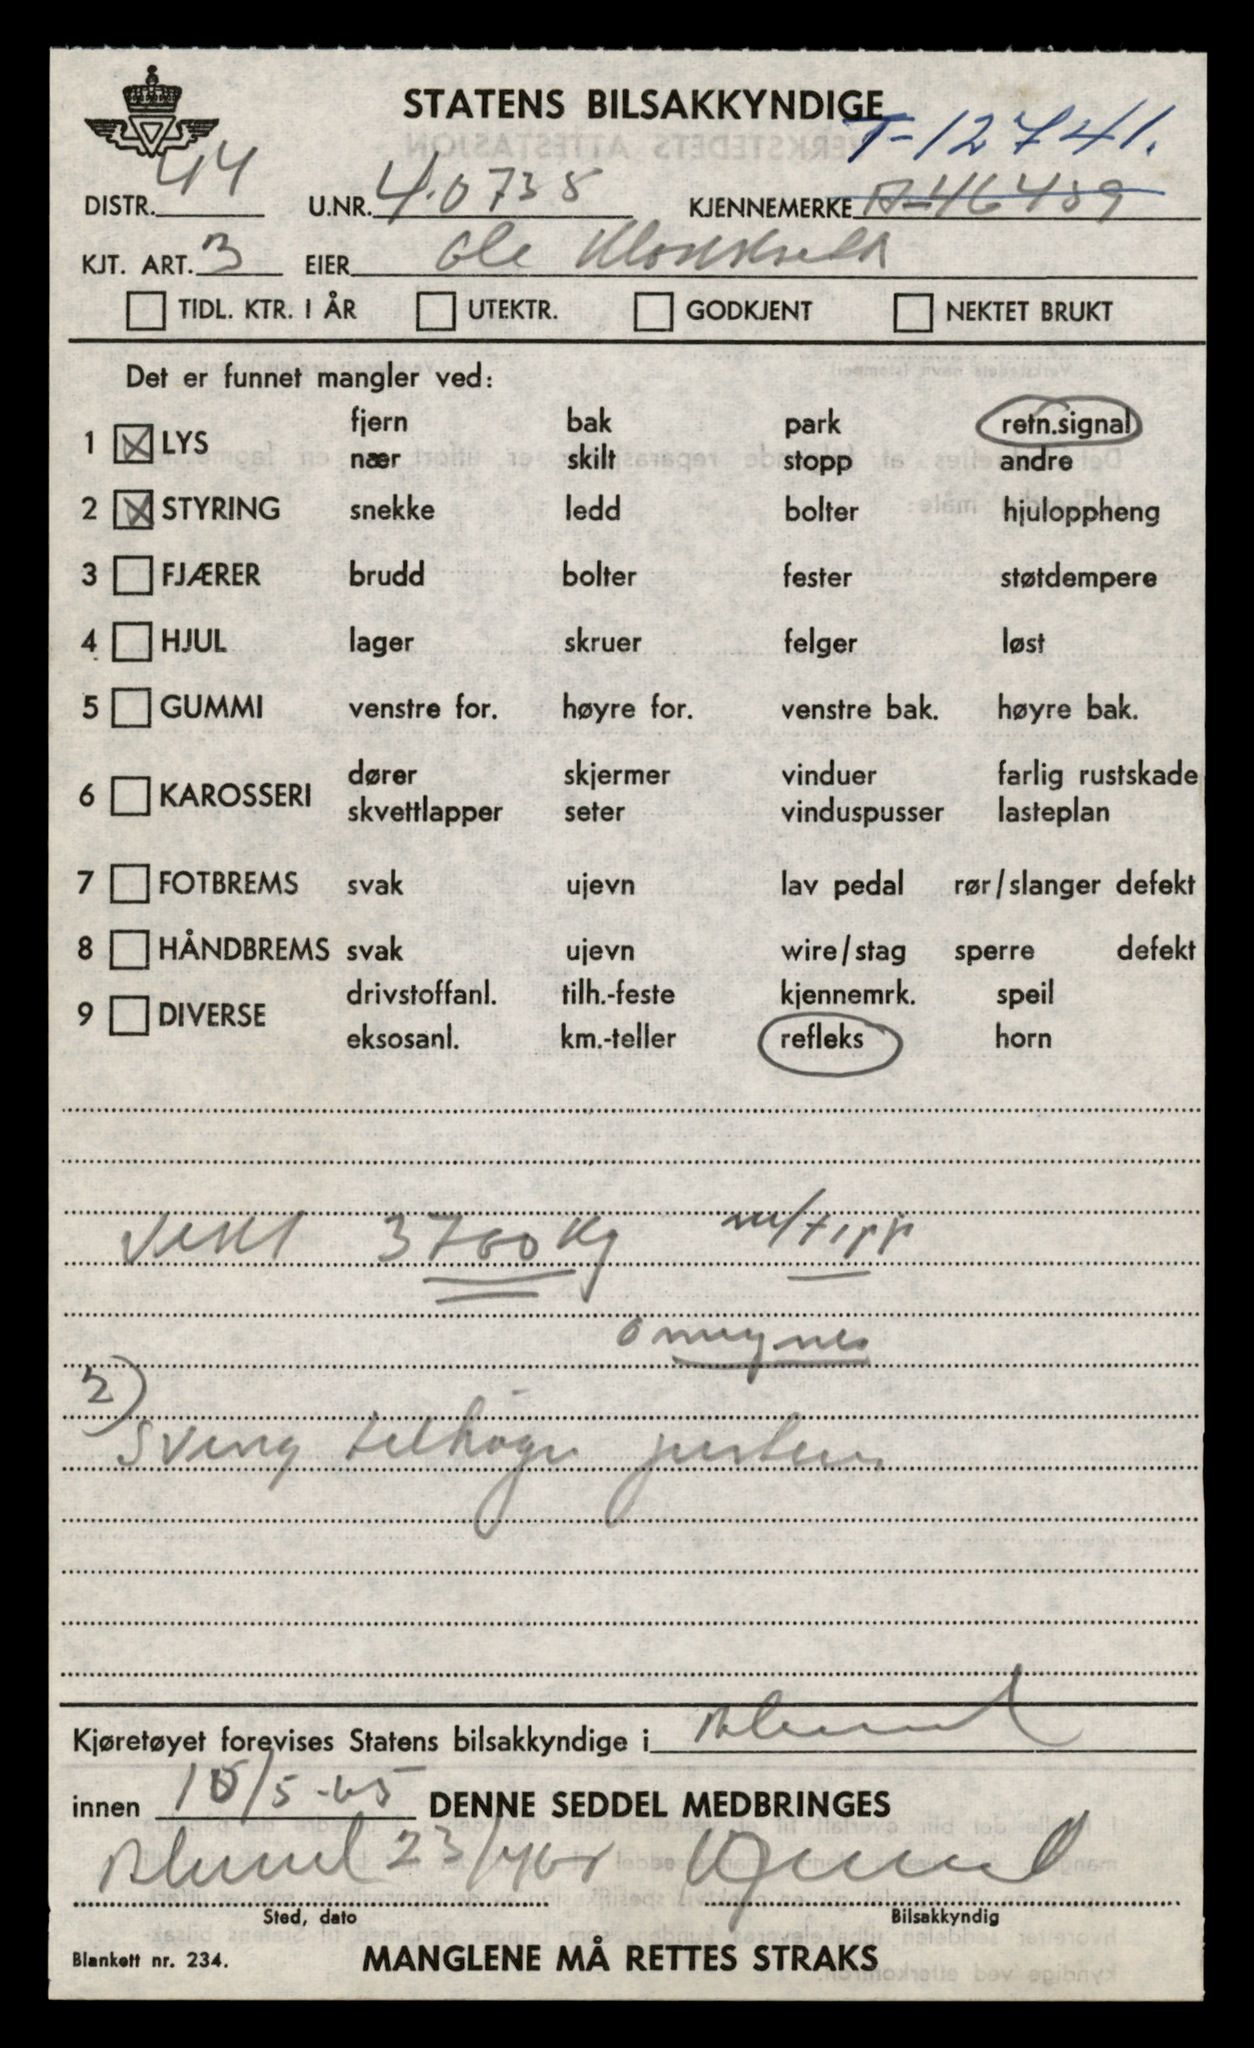 STATENS BILSAKKYNDIGE
T-12741.
DISTR. 44 U.NR. 4.0735 KJENNEMERKE A-46489
KJT. ART. 3 EIER Ole
TIDL. KTR. I ÅR UTEKTR. GODKJENT NEKTET BRUKT
Det er funnet mangler ved:
fjern bak park retn.signal
1 LYS
nær skilt stopp andre
2 STYRING snekke ledd bolter hjuloppheng
3 FJÆRER brudd bolter fester støtdempere
4 HJUL lager skruer felger løst
5 GUMMI venstre for. høyre for. venstre bak. høyre bak.
dører skjermer vinduer farlig rustskade
6 KAROSSERI
skvettlapper seter vinduspusser lasteplan
7 FOTBREMS svak ujevn lav pedal rør/slanger defekt
8 HÅNDBREMS svak ujevn wire/stag sperre defekt
drivstoffanl. tilh.-feste kjennemrk. speil
9 DIVERSE
eksosanl. km.-teller refleks horn
Vekt 3760 Kg m/tipp
omregnes
2)
Sving til høgre justeres
Kjøretøyet forevises Statens bilsakkyndige i
innen 15/5-65 DENNE SEDDEL MEDBRINGES
23/4 65
Sted, dato Bilsakkyndig
Blankett nr. 234. MANGLENE MÅ RETTES STRAKS